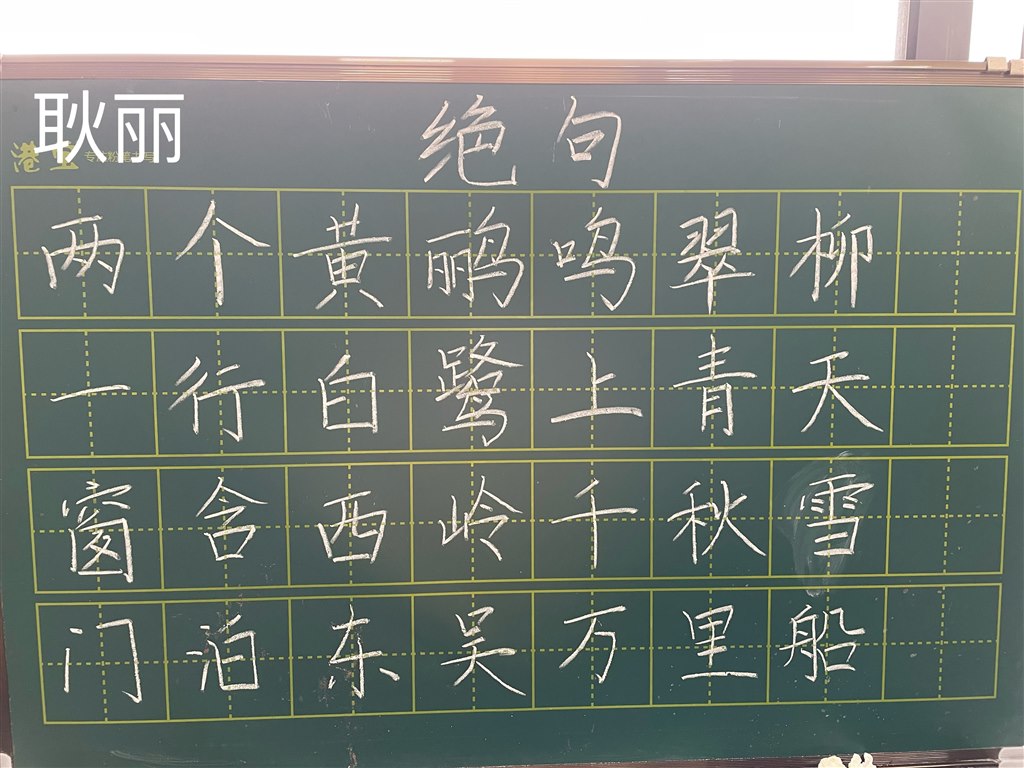 耿丽
绝句
两个黄鹂鸣翠柳
一行白鹭上青天
窗含西岭千秋雪
门泊东吴万里船